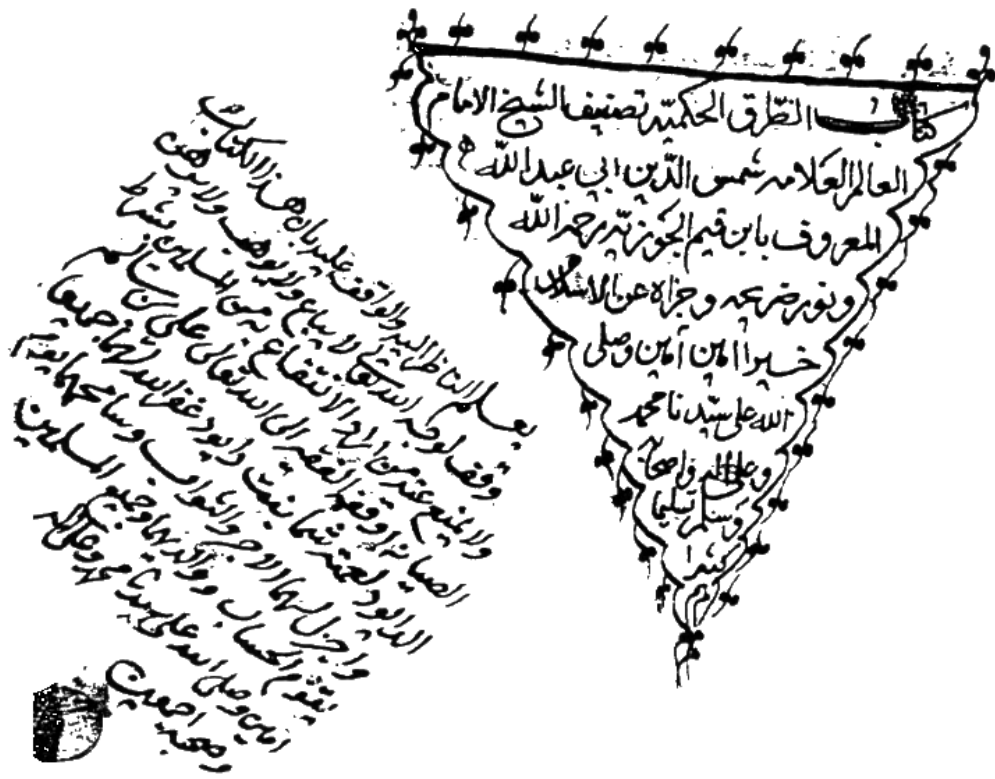 كتاب الطرق الحكمية تصنيف الشيخ الامام
العالم العلامه شمس الدين ابي عبد الله
المعروف بابن قيم الجوزيه رحمه الله
ونور ضريحه وجزاه عن الاسلام
خيرا امين آمين وصلى
الله على سيدنا محمد
وعلى اله واصحابه
وسلم تسليما
كثيرا
م
يعلم الناظر اليه والواقف عليه بان هذا الكتاب
وقف لوجه الله تعالى لا يباع ولا يوهب ولا يرهن
ولا يمنع عند من اراد الانتفاع به من المسلمين بشرط
الصيانه اوقفه الفقير الى الله تعالى علي بن
الداود لعمته شما بنت داود غفر الله لهما جميعا
واجزل لهما الاجر والثواب وسامحهما يوم
يقوم الحساب ووالديهما وجميع المسلمين
امين وصلى الله على سيدنا محمد وعلى اله
وصحبه اجمعين